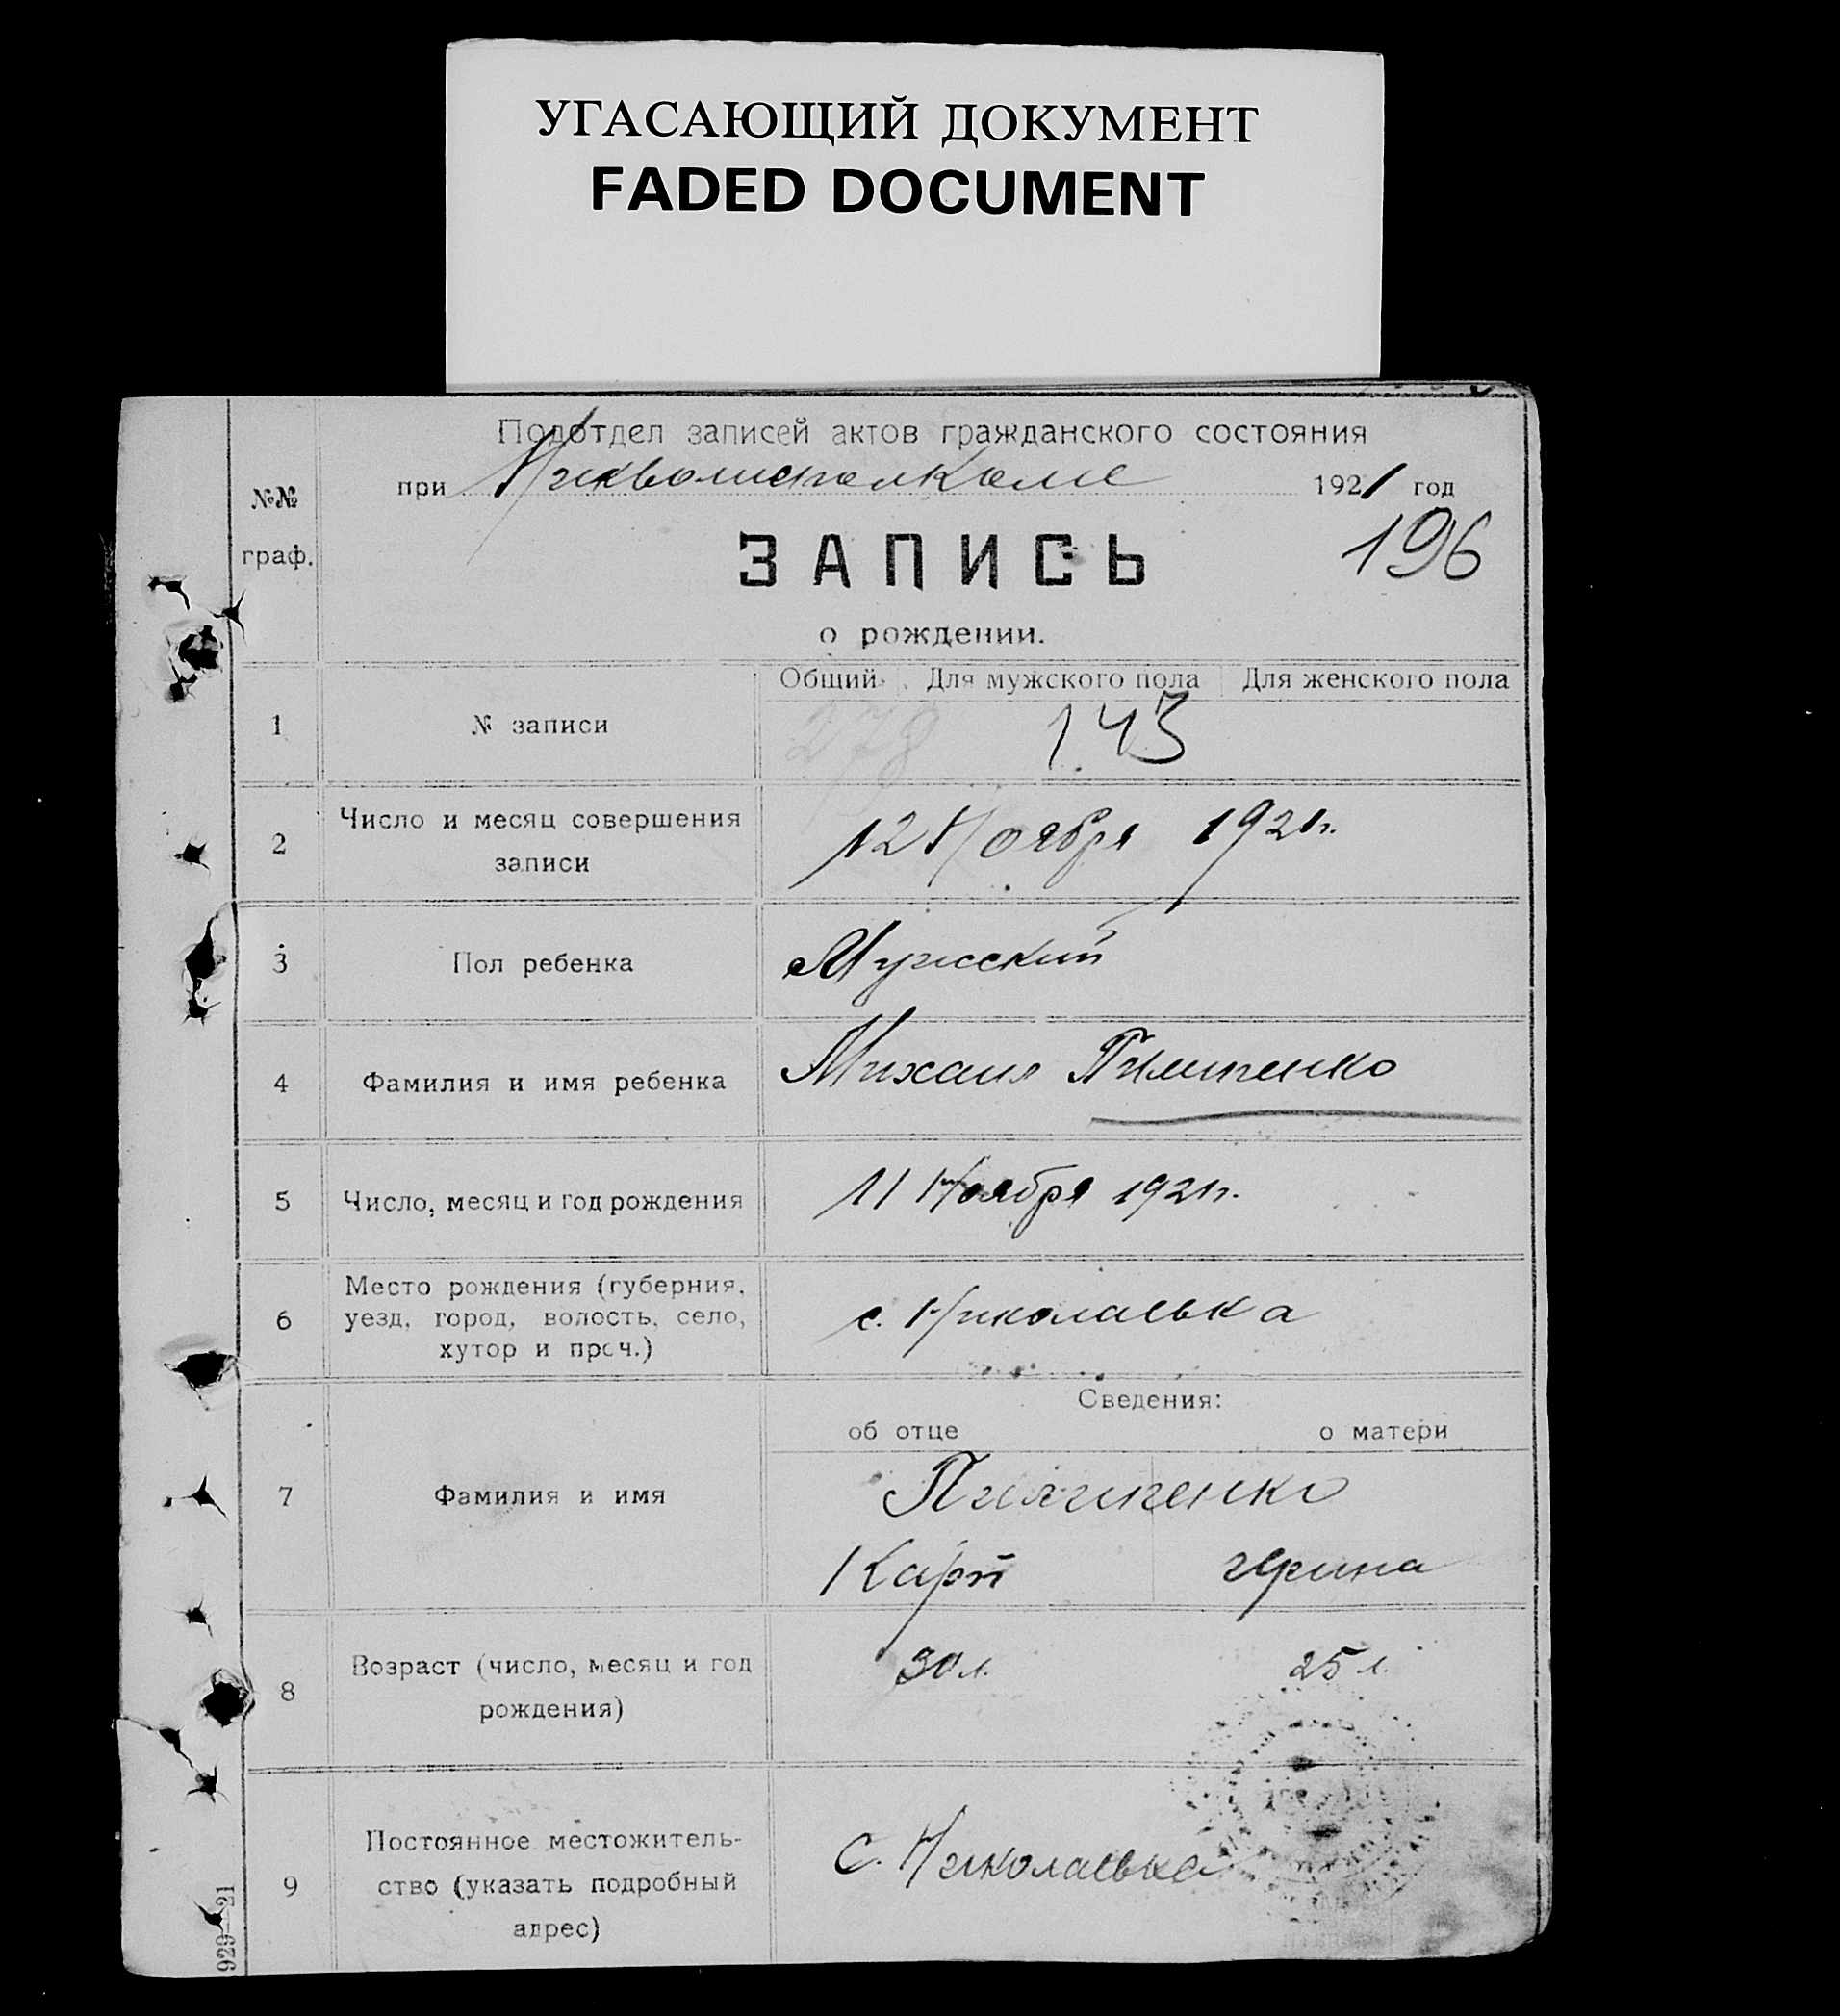 УГАСАЮЩИЙ ДОКУМЕНТ
FADED DOCUMENT
Подотдел записей актов гражданского состояния
при Никволисполкоме 1921 год
№№
граф.
196
ЗАПИСЬ
о рождении.
Общий Для мужского пола Для женского пола
1 № записи 278 143
2 Число и месяц совершения
записи
12 Ноября 1921г.
3 Пол ребенка Мужский
4 Фамилия и имя ребенка Михаил Пилипенко
5 Число, месяц и год рождения 11 Ноября 1921г.
6 Место рождения (губерния,
уезд, город, волость, село,
хутор и проч.)
с. Николаевка
Сведения:
об отце о матери
7 Фамилия и имя Пилипенко
Карп Ирина
8 Возраст (число, месяц и год
рождения)
30 л. 25 л.
9 Постоянное местожитель-
ство (указать подробный
адрес)
С. Николаевка
929—21